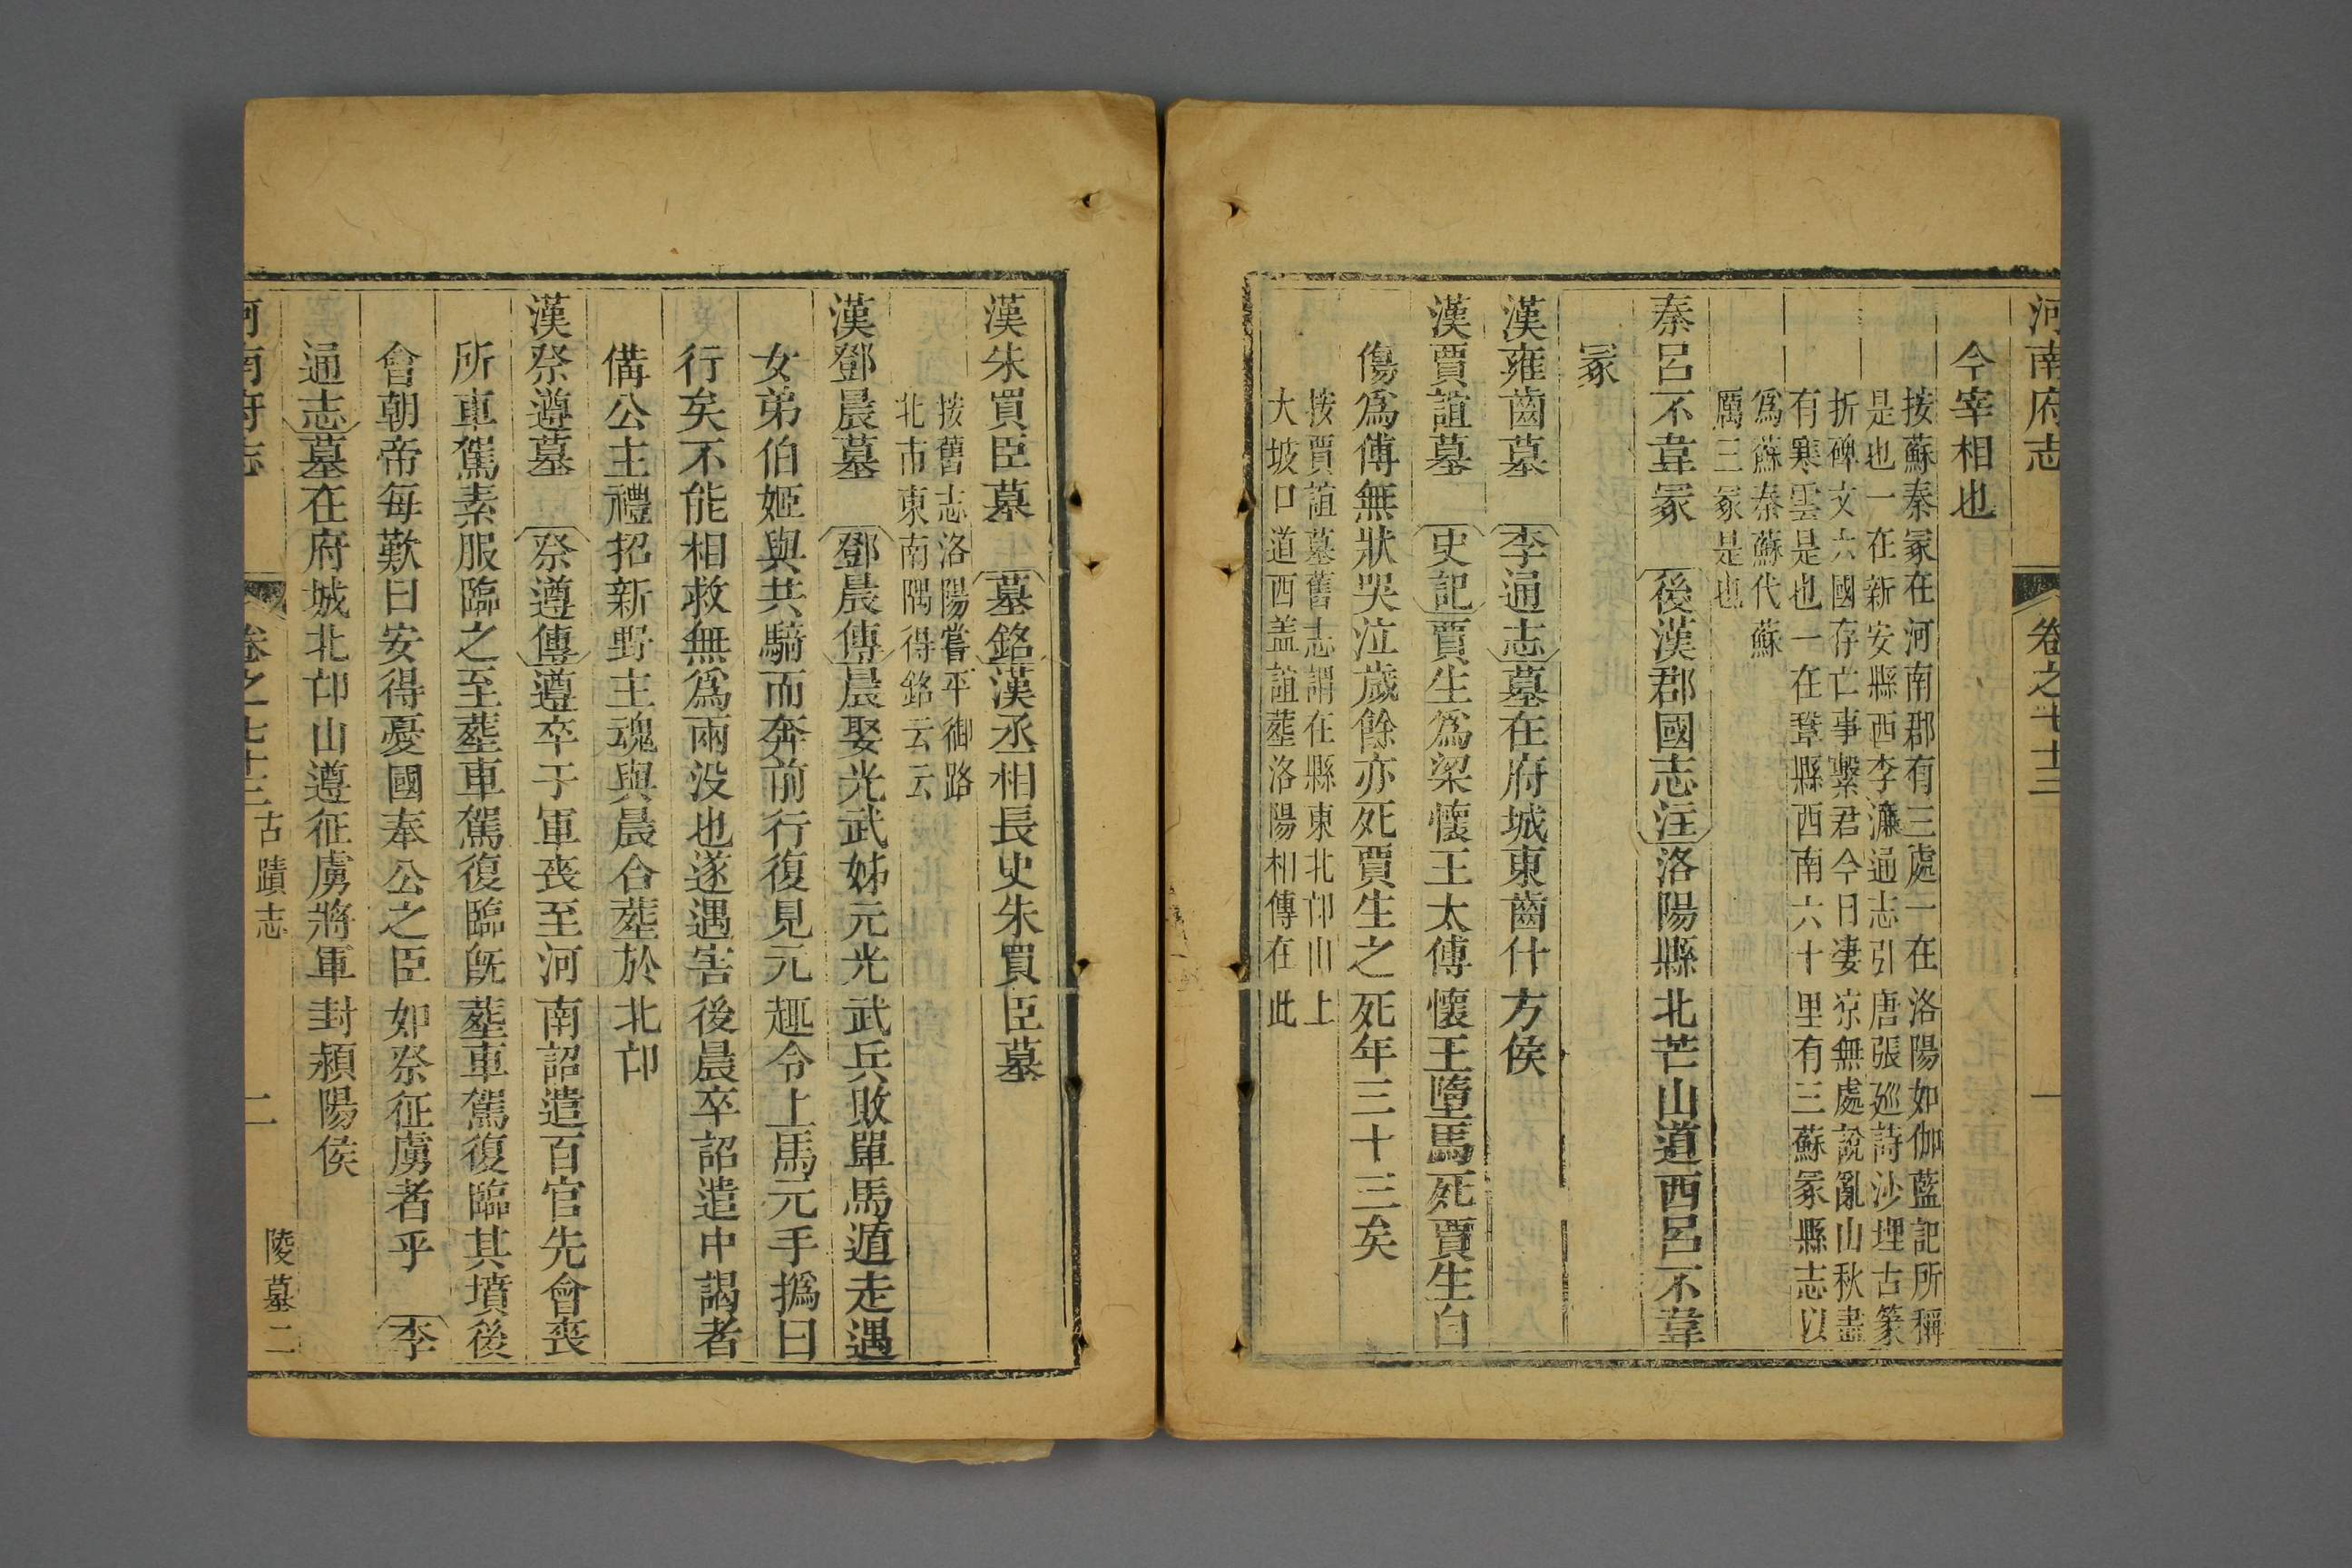 河南府志 卷之七十三 一
今宰相也
按蘇秦冢在河南郡有三處一在洛陽如伽藍記所稱
是也一在新安縣西李濂通志引唐張廵詩沙埋古篆
折碑文六國存亡事繫君今日凄凉無處說亂山秋盡
有寒雲是也一在鞏縣西南六十里有三蘇冢縣志以
爲蘇秦蘇代蘇
厲三冢是也
秦呂不韋冢 後漢郡國志注洛陽縣北芒山道西呂不韋
冡
漢雍齒墓 李通志墓在府城東齒什方侯
漢賈誼墓 史記賈生爲梁懷王太傅懷王墮馬死賈生自
傷爲傅無狀哭泣歲餘亦死賈生之死年三十三矣
按賈誼墓舊志謂在縣東北邙山上
大坡口道西盖誼塟洛陽相傳在此
漢朱買臣墓 墓銘漢丞相長史朱買臣墓
按舊志洛陽嘗平御路
北市東南隅得銘云云
漢鄧晨墓 鄧晨傳晨娶光武姊元光武兵敗單馬遁走遇
女弟伯姬與共騎而奔前行復見元趣令上馬元手撝曰
行矣不能相救無爲兩没也遂遇害後晨卒詔遣中謁者
備公主禮招新野主魂與晨合塟於北邙
漢祭遵墓 祭遵傳遵卒于軍喪至河南詔遣百官先會喪
所車駕素服臨之至塟車駕復臨旣塟車駕復臨其墳後
會朝帝每歎曰安得憂國奉公之臣如祭征虜者乎 李
通志墓在府城北邙山遵征虜將軍封潁陽侯
河南府志 卷之七十三 古蹟志 二 陵墓二